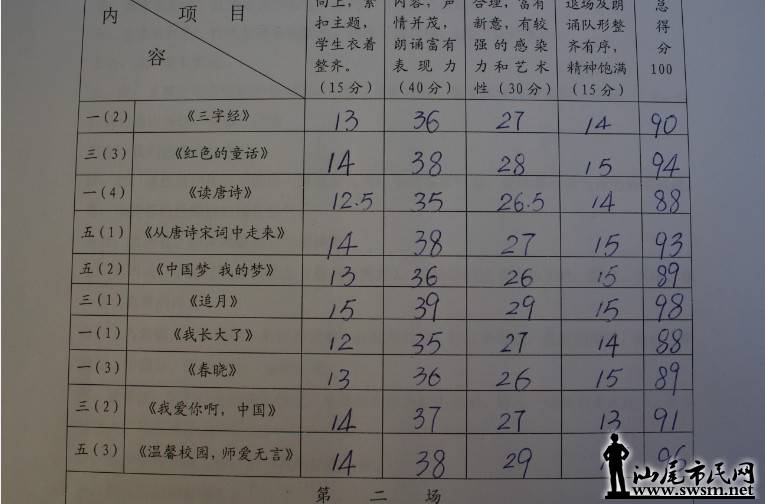 内
项 目
容
向上，紧
扣主题，
学生衣着
整齐。
(15分)
内容，声
情并茂，
朗诵富有
表现力
(40分)
合理，富有
新意，有较
强的感染
力和艺术
性(30分)
退场及朗
诵队形整
齐有序，
精神饱满
(15分)
总
得
分
100
一(2) 《三字经》 13 36 27 14 90
三(3) 《红色的童话》 14 38 28 15 94
一(4) 《读唐诗》 12.5 35 26.5 14 88
五(1) 《从唐诗宋词中走来》 14 38 27 15 93
五(2) 《中国梦 我的梦》 13 36 26 15 89
三(1) 《追月》 15 39 29 15 98
一(1) 《我长大了》 12 35 27 14 88
一(3) 《春晓》 13 36 26 15 89
三(2) 《我爱你啊，中国》 14 37 27 13 91
五(3) 《温馨校园，师爱无言》 14 38 29 96
第 二 场
汕尾市民网
www.swsm.net